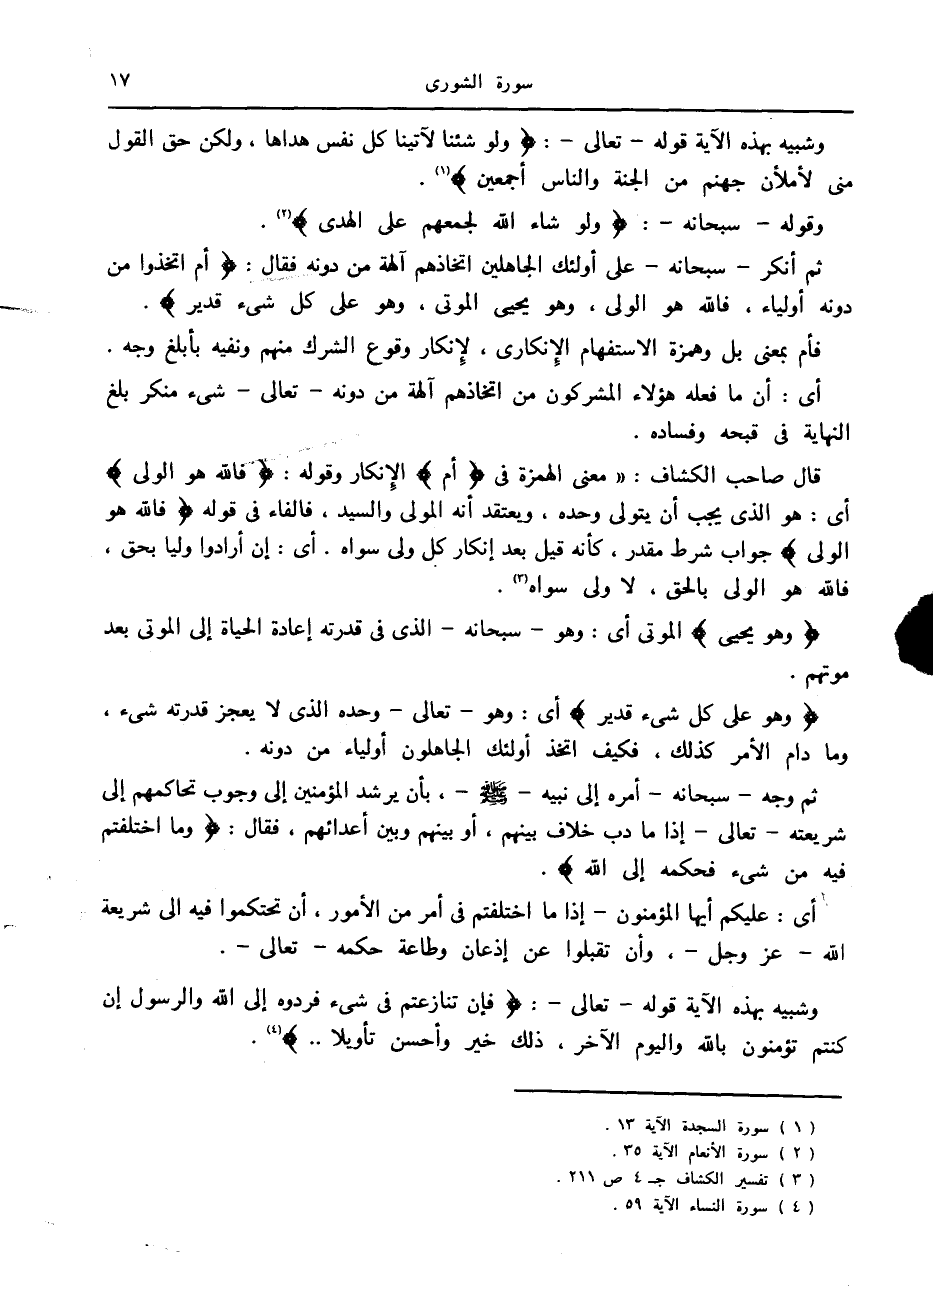 سورة الشورى ١٧
وشبيه بهذه الآية قوله – تعالى – : ﴿ ولو شئنا لآتينا كل نفس هداها ، ولكن حق القول
منى لأملأن جهنم من الجنة والناس أجمعين ﴾(١) .
وقوله – سبحانه – : ﴿ ولو شاء الله لجمعهم على الهدى ﴾(٢) .
ثم أنكر – سبحانه – على أولئك الجاهلين اتخاذهم آلهة من دونه فقال : ﴿ أم اتخذوا من
دونه أولياء ، فالله هو الولى ، وهو يحيى الموتى ، وهو على كل شىء قدير ﴾ .
فأم بمعنى بل وهمزة الاستفهام الإنكارى ، لإنكار وقوع الشرك منهم ونفيه بأبلغ وجه .
أى : أن ما فعله هؤلاء المشركون من اتخاذهم آلهة من دونه – تعالى – شىء منكر بلغ
النهاية فى قبحه وفساده .
قال صاحب الكشاف : « معنى الهمزة فى ﴿ أم ﴾ الإنكار وقوله : ﴿ فالله هو الولى ﴾
أى : هو الذى يجب أن يتولى وحده ، ويعتقد أنه المولى والسيد ، فالفاء فى قوله ﴿ فالله هو
الولى ﴾ جواب شرط مقدر ، كأنه قيل بعد إنكار كل ولى سواه . أى : إن أرادوا وليا بحق ،
فالله هو الولى بالحق ، لا ولى سواه(٣) .
﴿ وهو يحيى ﴾ الموتى أى : وهو – سبحانه – الذى فى قدرته إعادة الحياة إلى الموتى بعد
موتهم .
﴿ وهو على كل شىء قدير ﴾ أى : وهو – تعالى – وحده الذى لا يعجز قدرته شىء ،
وما دام الأمر كذلك ، فكيف اتخذ أولئك الجاهلون أولياء من دونه .
ثم وجه – سبحانه – أمره إلى نبيه – ﷺ – ، بأن يرشد المؤمنين إلى وجوب تحاكمهم إلى
شريعته – تعالى – إذا ما دب خلاف بينهم ، أو بينهم وبين أعدائهم ، فقال : ﴿ وما اختلفتم
فيه من شىء فحكمه إلى الله ﴾ .
أى : عليكم أيها المؤمنون – إذا ما اختلفتم فى أمر من الأمور ، أن تحتكموا فيه الى شريعة
الله – عز وجل – ، وأن تقبلوا عن إذعان وطاعة حكمه – تعالى – .
وشبيه بهذه الآية قوله – تعالى – : ﴿ فإن تنازعتم فى شىء فردوه إلى الله والرسول إن
كنتم تؤمنون بالله واليوم الآخر ، ذلك خير وأحسن تأويلا .. ﴾(٤) .
( ١ ) سورة السجدة الآية ١٣ .
( ٢ ) سورة الأنعام الآية ٣٥ .
( ٣ ) تفسير الكشاف جـ ٤ ص ٢١١ .
( ٤ ) سورة النساء الآية ٥٩ .